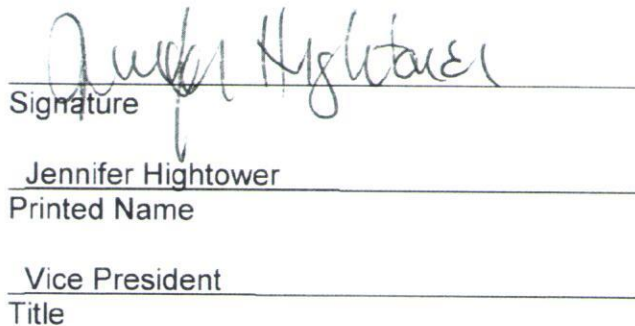 Jennifer Hightower
Signature
Jennifer Hightower
Printed Name
Vice President
Title